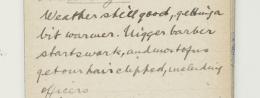 Weather still good, getting a
bit warmer. Nigger barber
starts work, and most of us
get our hair clipped, including
officers